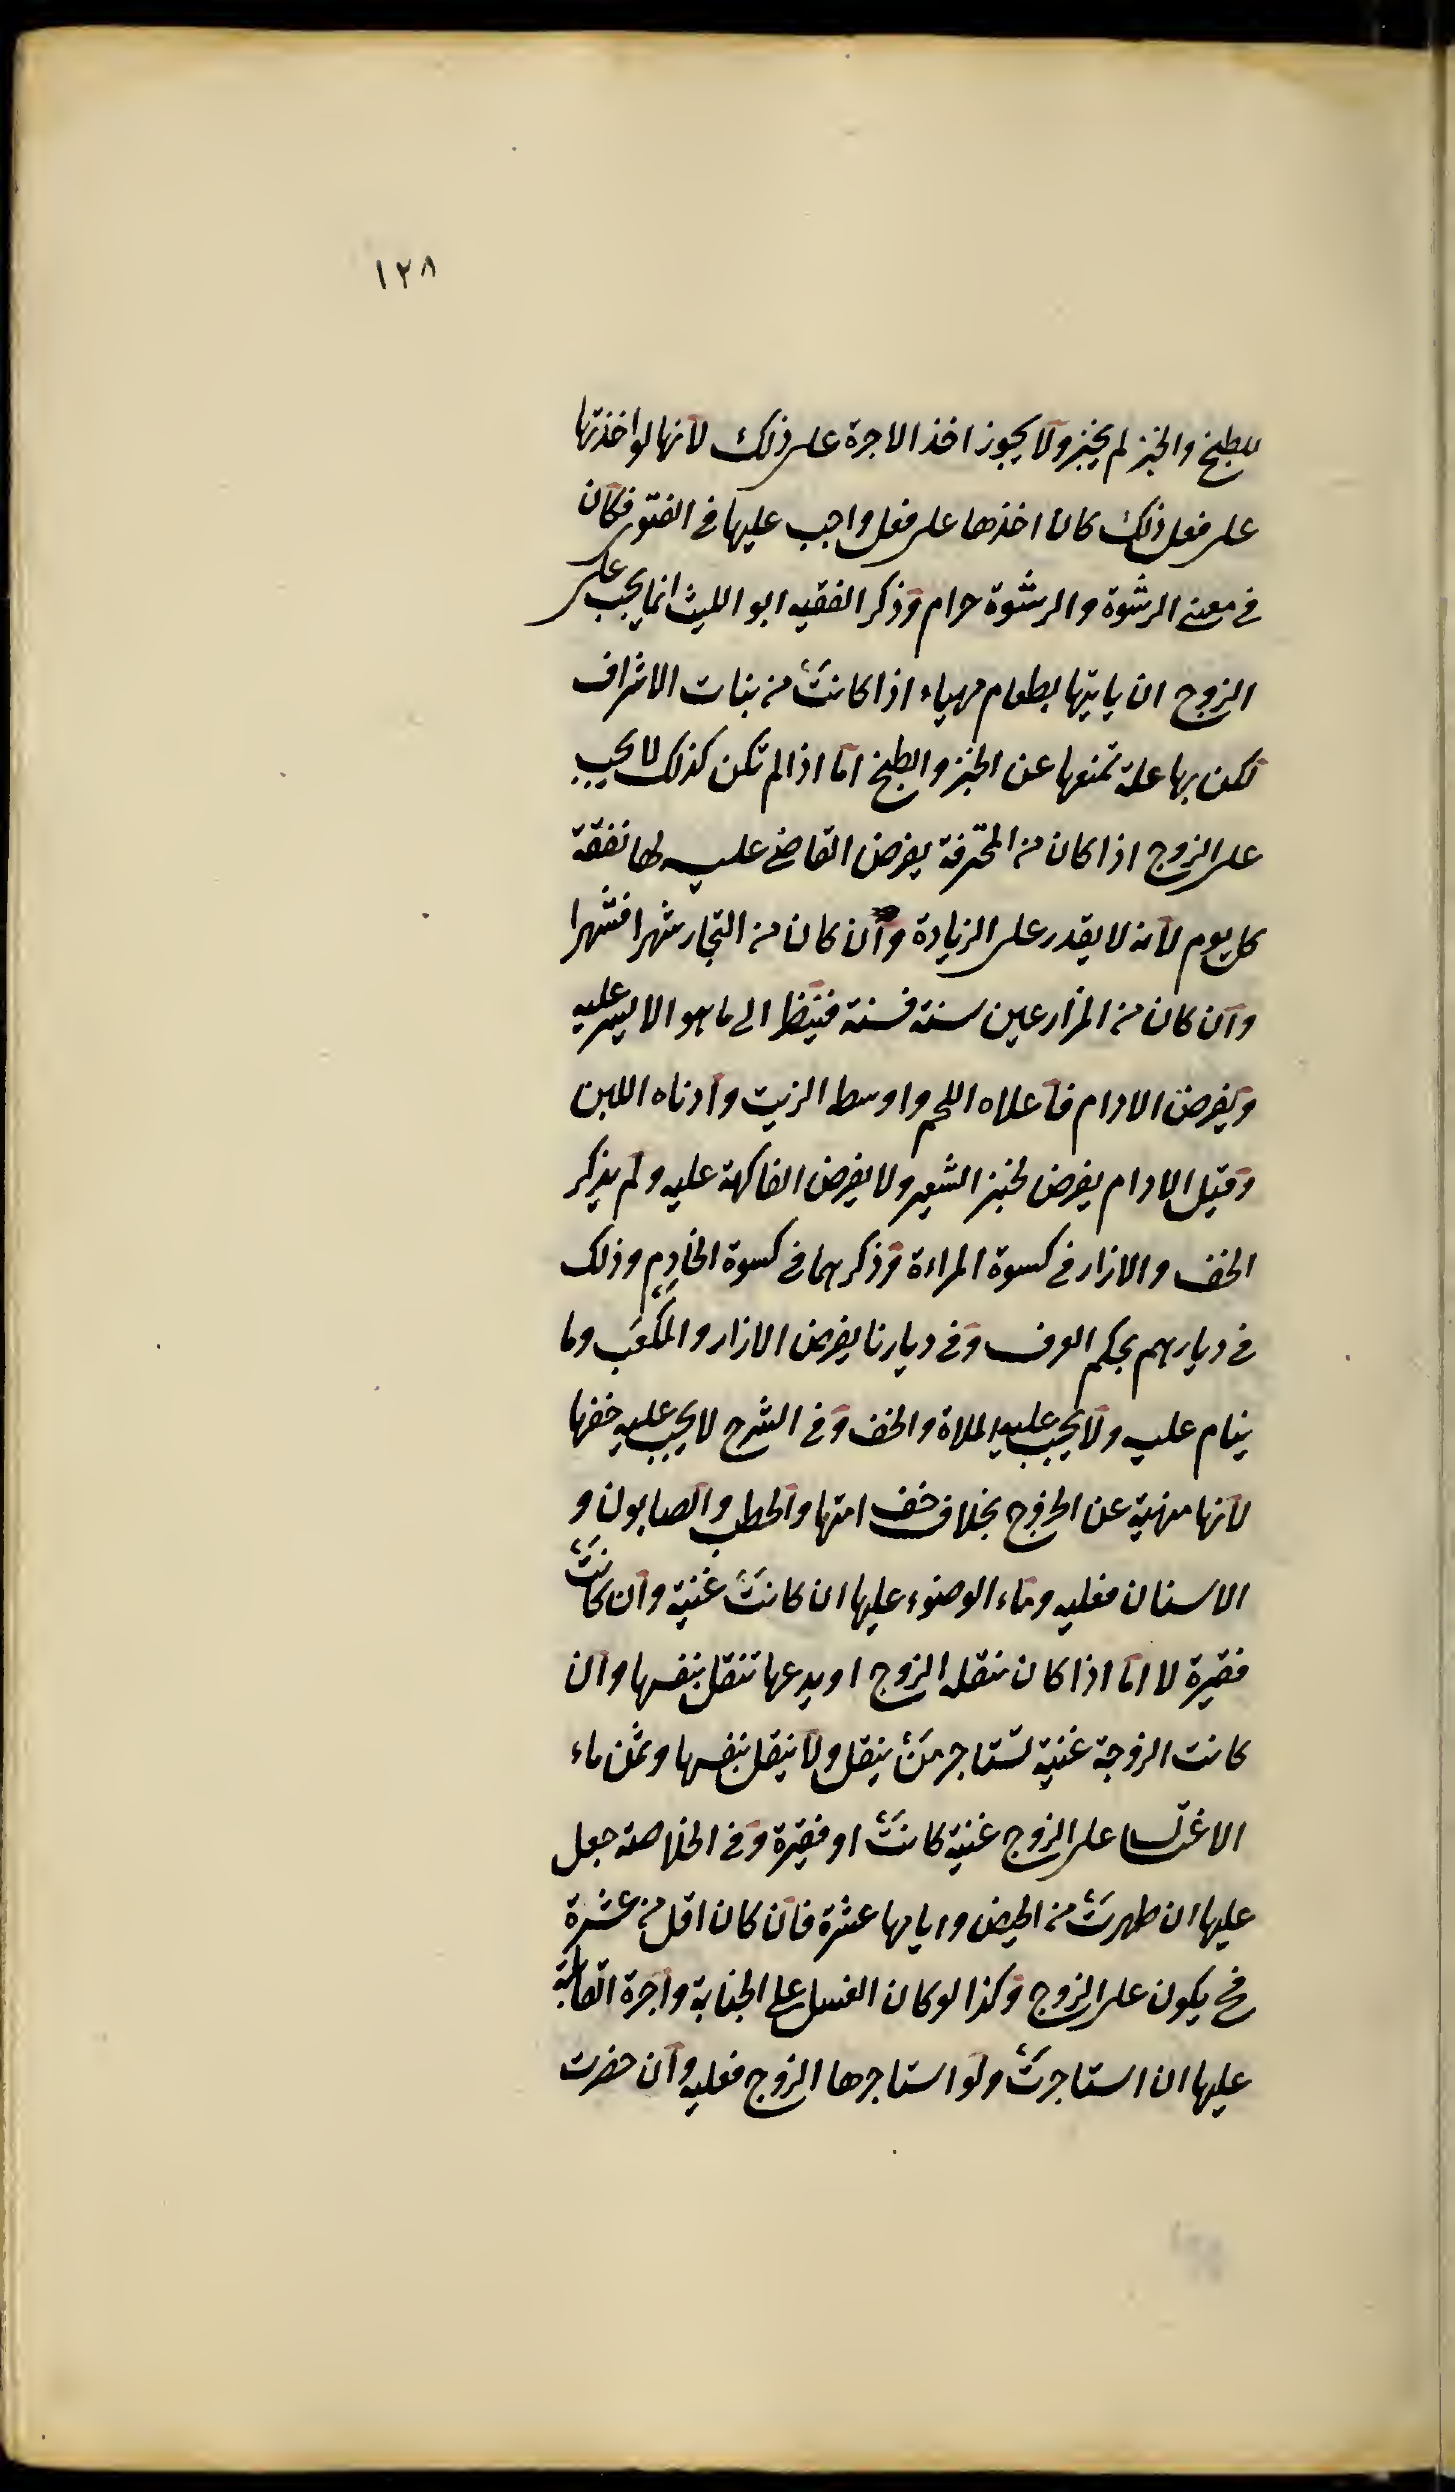 ١٢٨
للطبخ والخبز لم يجبر ولا يجوز اخذ الاجرة على ذلك لانها لو اخذتها
على فعل ذلك كان اخذها على فعل واجب عليها فى الفتوى فكان
فى معنى الرشوة والرشوة حرام وذكر الفقيه ابو الليث انما يجب على
الزوج ان ياتيها بطعام مهياء اذا كانت من بنات الاشراف
لكن بها علة تمنعها عن الخبز والطبخ اما اذا لم تكن كذلك لا يجب
على الزوج اذا كان من المحترفة يفرض القاضى عليه لها نفقة
كل يوم لانه لا يقدر على الزيادة وان كان من التجار شهرا فشهرا
وان كان من المزارعين سنة فسنة فينظر الى ما هو الايسر عليه
ويفرض الادام فاعلاه اللحم واوسط الزيت وادناه اللبن
وقيل الادام يفرض لخبز الشعير ولا يفرض الفاكهة عليه ولم يذكر
الخف والازار فى كسوة المراءة وذكرهما فى كسوة الخادم وذلك
فى ديارهم بحكم العرف وفى ديارنا يفرض الازار والمكعب وما
ينام عليه ولا يجب عليه الملاة والخف وفى الشرح لا يجب عليه خفها
لانها منهية عن الخروج بخلاف خف امتها والحطب والصابون و
الاسنان فعليه وماء الوضوء عليها ان كانت غنية وان كانت
فقيرة لا اما اذا كان ينقله الزوج او يدعها تنقل بنفسها وان
كانت الزوجة غنية تستاجر من ينقل ولا ينقل بنفسها وثمن ماء
الاغتسال على الزوج غنية كانت او فقيرة وفى الخلاصة جعل
عليها ان طهرت من الحيض وايامها عشرة فان كان اقل من عشرة
فح يكون على الزوج وكذا لو كان الغسل على الجنابة واجرة القابلة
عليها ان استاجرت ولو استاجرها الزوج فعليه وان حضرت